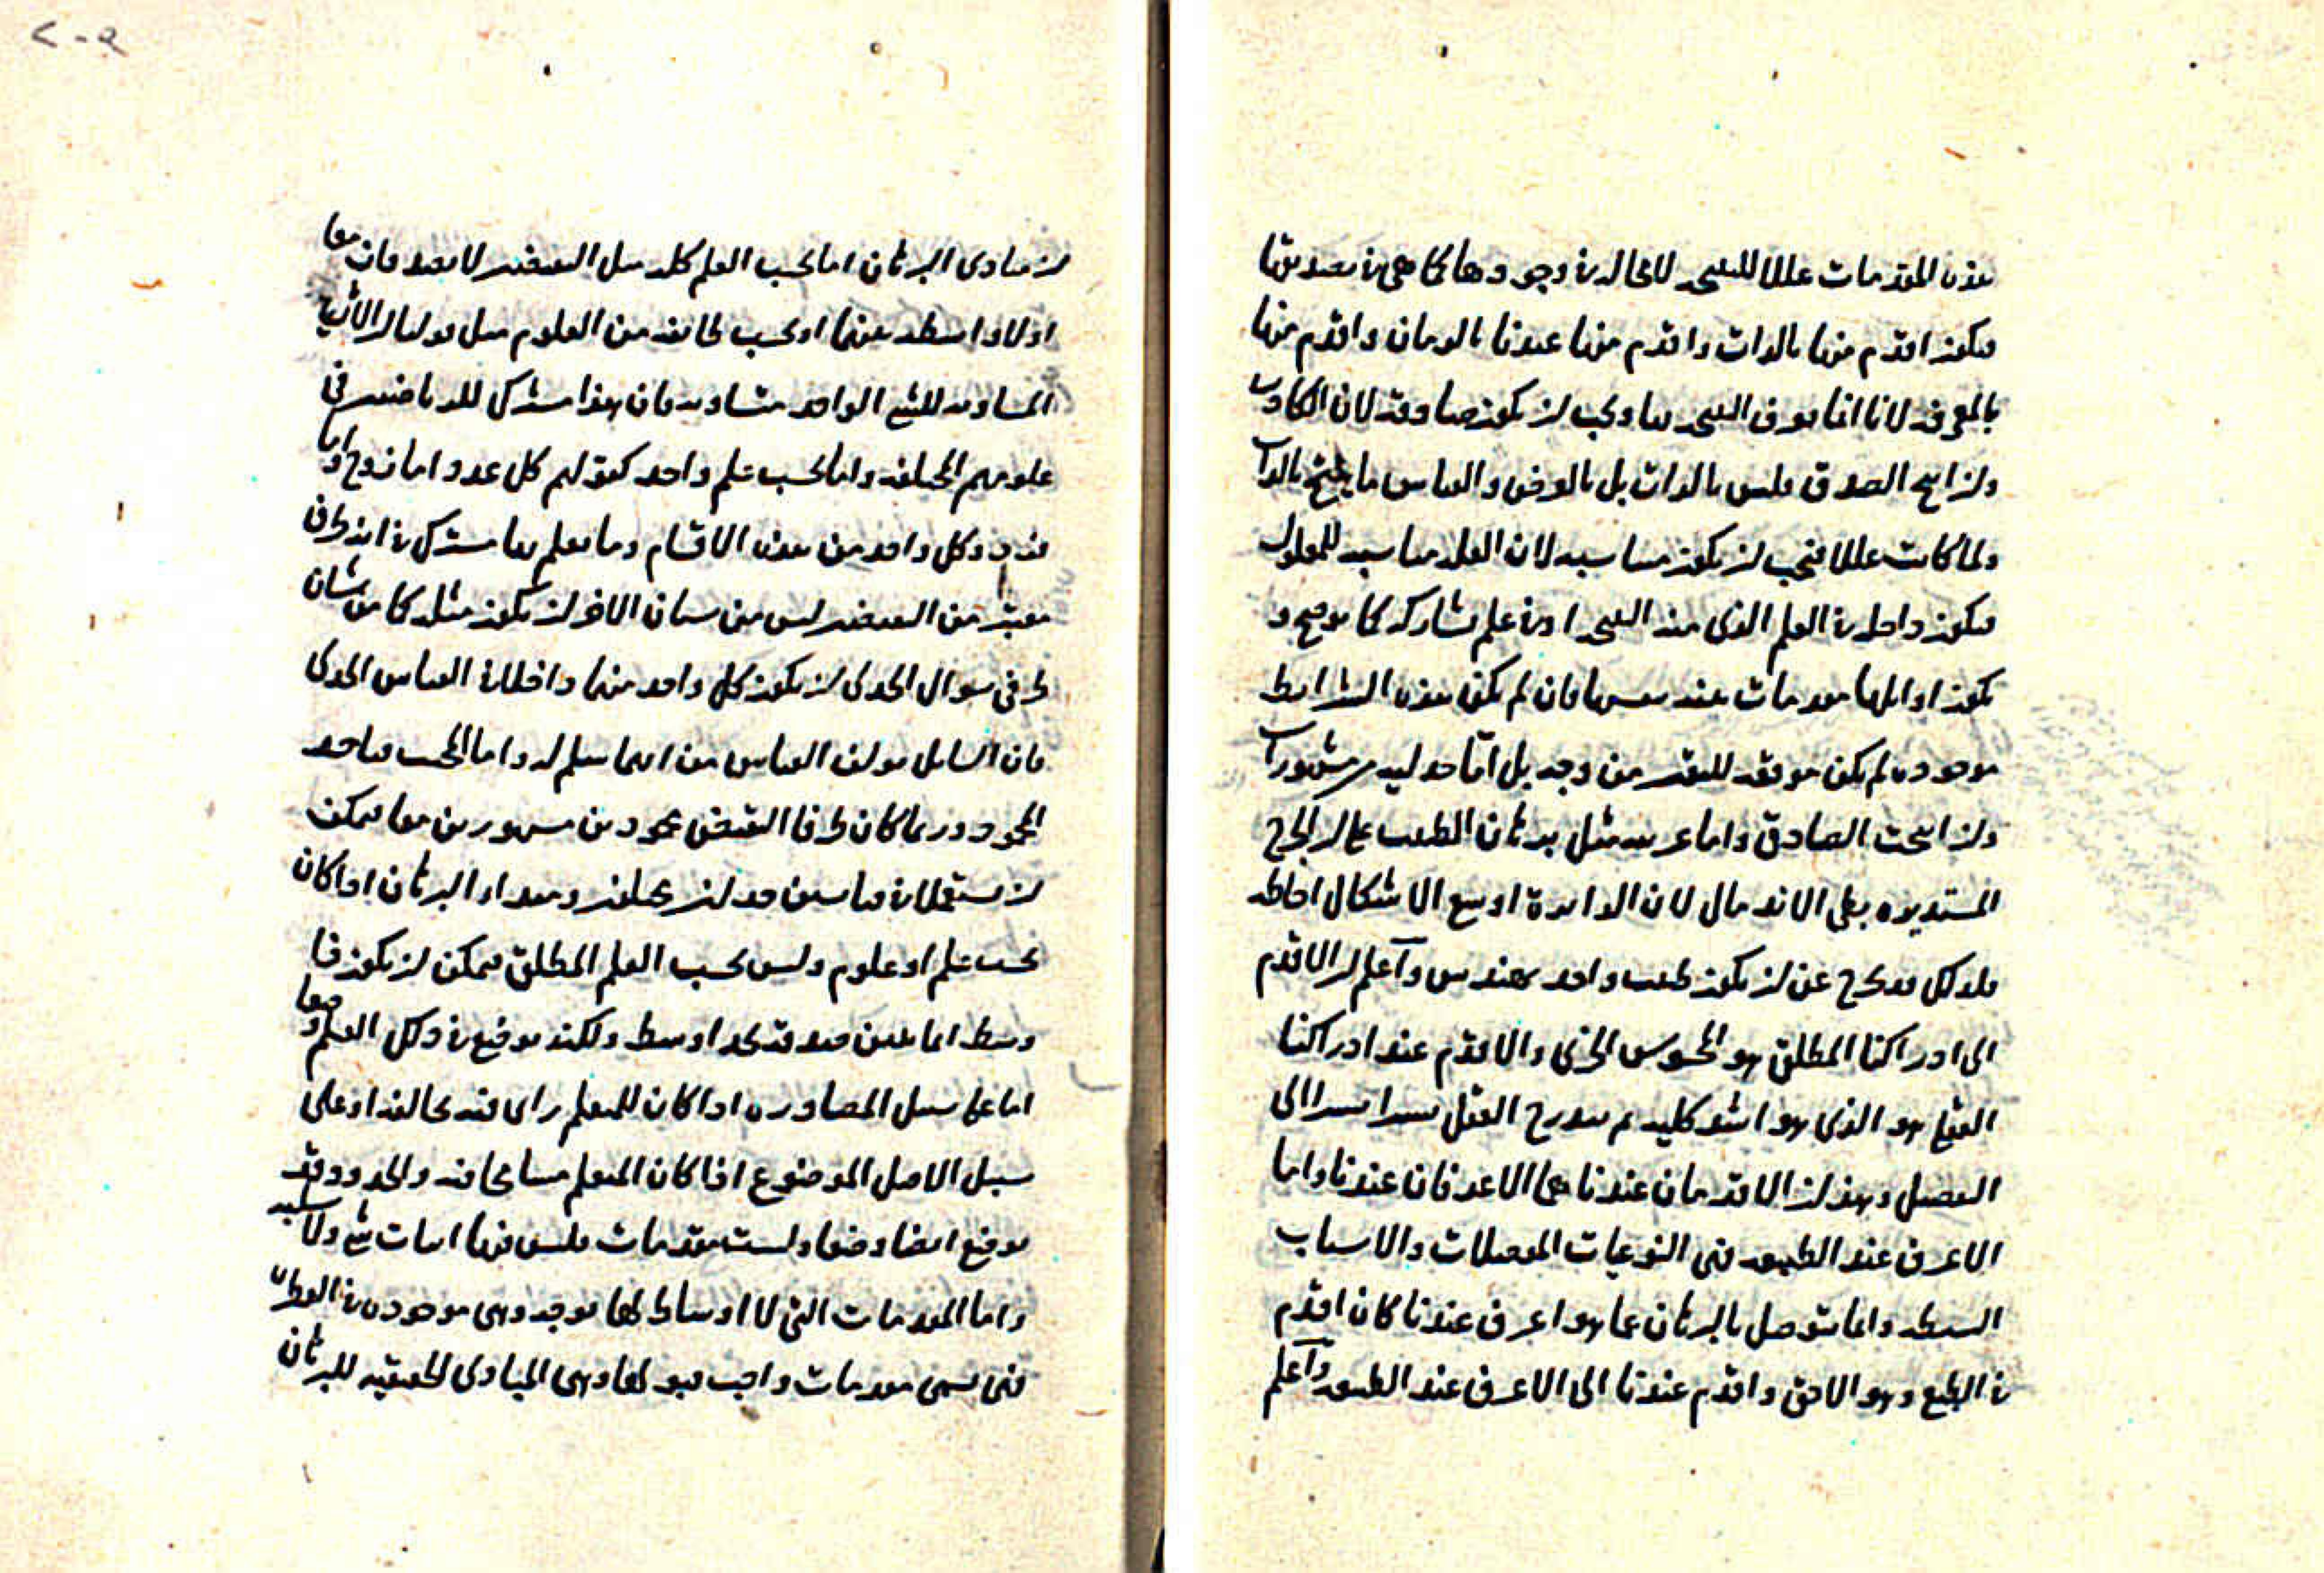 هذه المقدمات عللا للنتيجه لا محاله في وجودها كما هي في تصديقها
فيكون اقدم منها بالذات واقدم منها عندنا بالزمان واقدم منها
بالمعرفه لانا انما نعرف النتيجه بها ويجب ان يكون صادقه لان الكاذب
وان انتج الصدق فليس بالذات بل بالعرض والقياس ما ينتج بالذات
ولما كانت عللا فيجب ان يكون مناسبه لان العله مناسبه للمعلول
فيكون داخله في العلم الذي منه النتيجه او في علم يشاركه كما نوضح و
يكون اوائلها مقدمات بينه بنفسها فان لم يكن هذه الشرائط
موجوده لم يكن موقعه لليقين من وجه بل اما جدليه من مشهورات
وان انتجت الصادق واما غريبه مثل برهان الطبيب على ان الجرح
المستديره بطي الاندمال لان الدايره اوسع الاشكال احاطه
فلذلك قد يخرج عن ان يكون طبيب واحد بهندس واعلم ان الاقدم
الى ادراكنا المطلق هو المحسوس الجزئي والاقدم عند ادراكنا
العقلي هو الذي هو اشد كليه ثم يتدرج العقل يسيرا يسيرا الى
التفصيل وبهذا ان الاقدمان عندنا هما الاعرفان عندنا واما
الاعرف عند الطبيعه فهي النوعيات المفصلات والاسباب
البسيطه وانما نتوصل بالبرهان عما هو اعرف عندنا كان اقدم
في الطبع وهو الاحق واقدم عندنا الى الاعرف عند الطبيعه واعلم
٢٠٩
ان مبادى البرهان اما بحسب العلم كله مثل النقيضين لا يصدقان معا
اولا واسطه بينهما او بحسب طائفه من العلوم مثل قولنا ان الاشياء
المساويه للشي الواحد متساويه فان هذا مشترك للرياضيين في
علومهم المختلفه واما بحسب علم واحد كقولهم كل عدد اما زوج واما
فرد وكل واحد من هذه الاقسام وما يعلم بها مشترك في انه طرف
معين من النقيضين ليس من شان الاخر ان يكون مثله كما من شان
طرفي سوال الجدلي ان يكون كل واحد منهما داخلا في القياس الجدلي
فان السايل يولف القياس من ايهما سلم له واما المجيب فياخذ
المحمود وربما كان طرفا النقيض محمودين مشهورين معا فيمكن
ان يستعملا في قياسين جدليين مختلفين ومبدا البرهان اذا كان
بحسب علم او علوم وليس بحسب العلم المطلق فيمكن ان يكون ذا
وسط انما يتبين صدقه بحد اوسط ولكنه يوضع في ذلك العلم وضعا
اما على سبيل المصادره اذا كان للمتعلم راى فيه يخالفه او على
سبيل الاصل الموضوع اذا كان المتعلم مسامحا فيه والحدود قد
يوضع ايضا وضعا وليست مقدمات فليس فيها اثبات شي ولا سلبه
واما المقدمات التي لا اوساط لها يوجد وهي موجوده في الفطره
فهي تسمى مقدمات واجب قبولها وهي المبادى الحقيقيه للبرهان